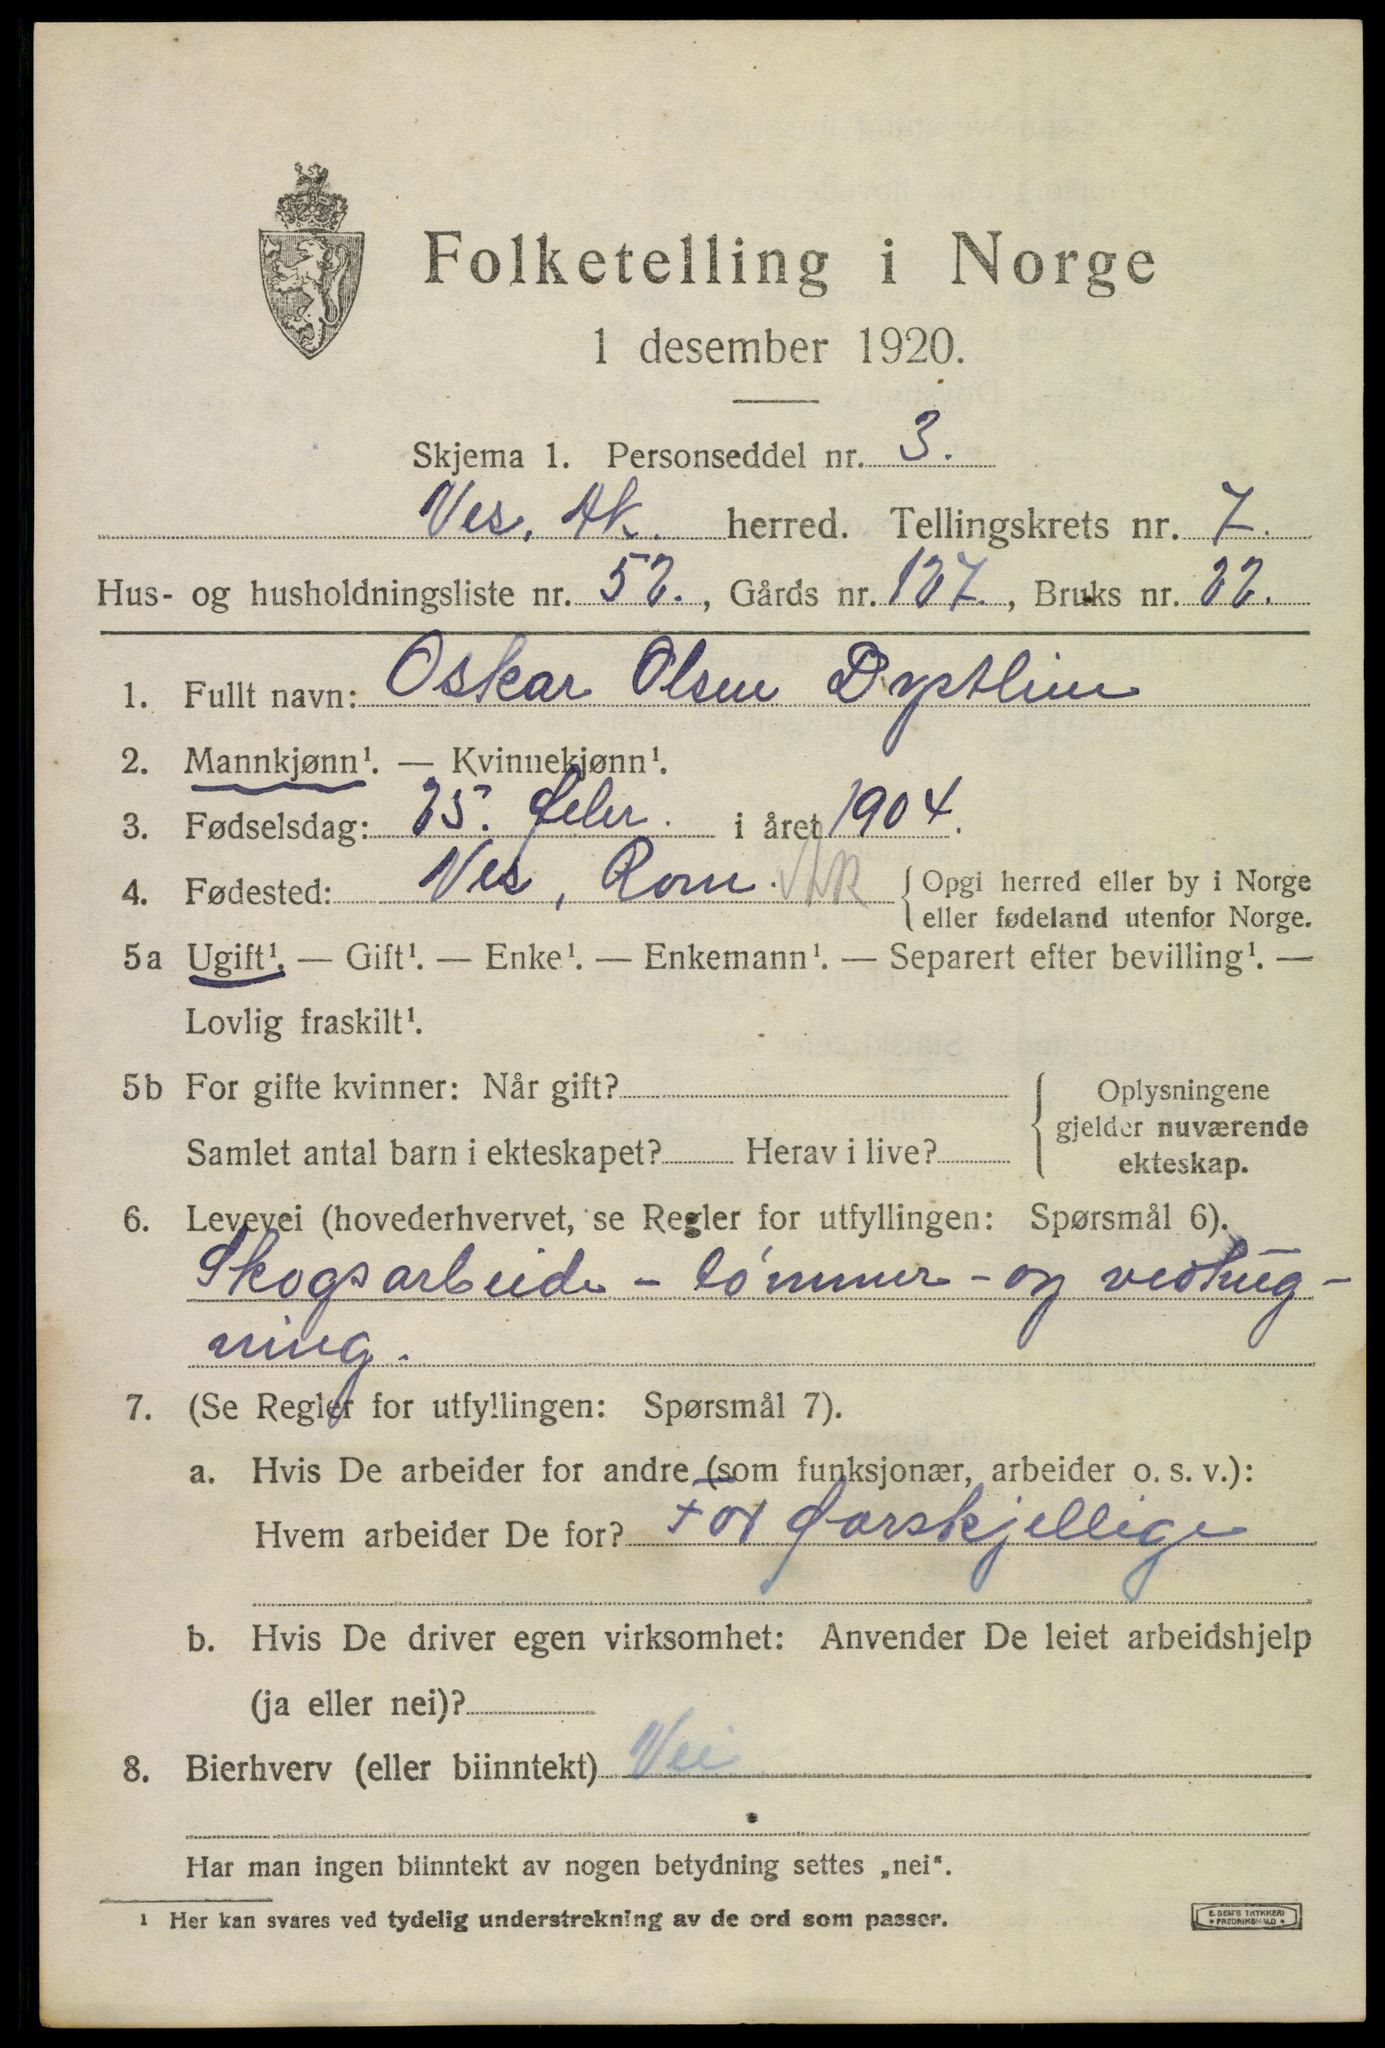 Folketelling i Norge
1 desember 1920.
Skjema 1. Personseddel nr. 3.
Nes, Ak. herred. Tellingskrets nr. 7.
Hus- og husholdningsliste nr. 52., Gårds nr. 127., Bruks nr. 22.
1. Fullt navn: Oskar Olsen Dystlien
2. Mannkjønn¹. — Kvinnekjønn¹.
3. Fødselsdag: 25. febr. i året 1904.
4. Fødested: Nes, Rom. Ak { Opgi herred eller by i Norge
eller fødeland utenfor Norge.
5a Ugift¹. — Gift¹. — Enke¹. — Enkemann¹. — Separert efter bevilling¹. —
Lovlig fraskilt¹.
5b For gifte kvinner: Når gift?
Samlet antal barn i ekteskapet? Herav i live?
{ Oplysningene
gjelder nuværende
ekteskap.
6. Levevei (hovederhvervet, se Regler for utfyllingen: Spørsmål 6).
Skogsarbeide - tømmer - og vedhug-
ning.
7. (Se Regler for utfyllingen: Spørsmål 7).
a. Hvis De arbeider for andre (som funksjonær, arbeider o. s. v.):
Hvem arbeider De for? For forskjellige
b. Hvis De driver egen virksomhet: Anvender De leiet arbeidshjelp
(ja eller nei)?
8. Bierhverv (eller biinntekt) Nei
Har man ingen biinntekt av nogen betydning settes „nei“.
¹ Her kan svares ved tydelig understrekning av de ord som passer.
E. SEM'S TRYKKERI
• FREDRIKSHALD •